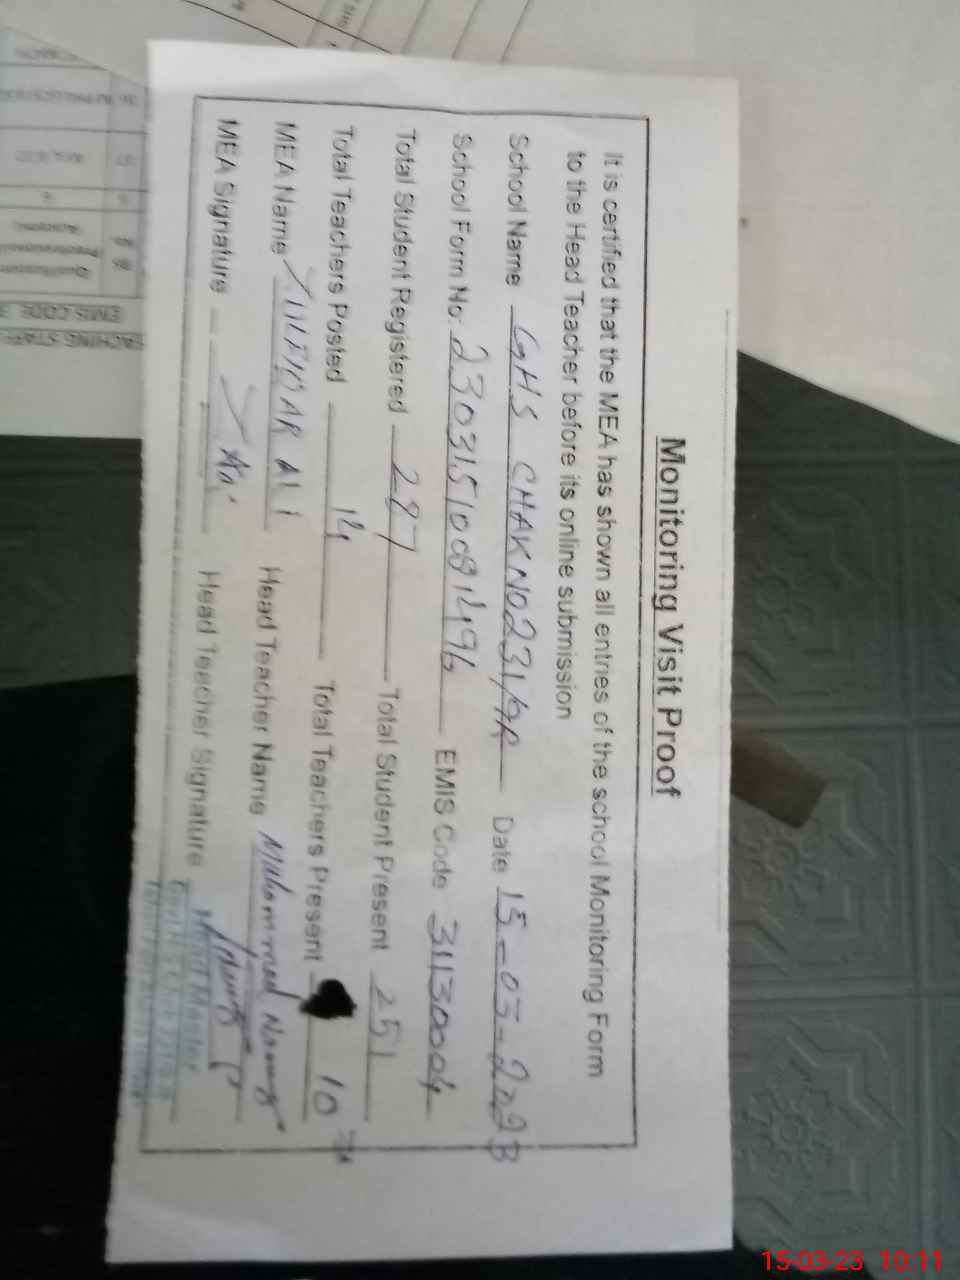 Monitoring Visit Proof
It is certified that the MEA has shown all entries of the school Monitoring Form
to the Head Teacher before its online submission
School Name GHS CHAK NO 231/9R Date 15-03-2023
School Form No: 23031510081496 EMIS Code 31130004
Total Student Registered 287 Total Student Present 251
Total Teachers Posted 14 Total Teachers Present 10
MEA Name ALI Head Teacher Name Muhammad
MEA Signature Head Teacher Signature
Head Master
EMIS CODE
TEACHING STAFF
15-03-23 10:11